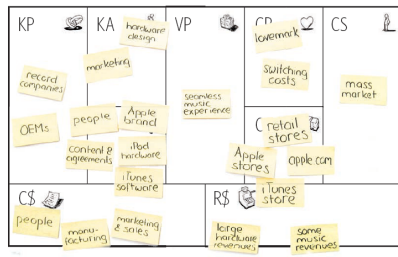 KP
record
companies
OEMs
KA
&
hardware
design
marketing
people
content &
agreements
Apple
brand
iPod
hardware
iTunes
software
VP
seamless
music
experience
CR
lovemark
switching
costs
C
retail
stores
Apple
stores
apple.com
iTunes
store
CS
mass
market
C$
people
manu-
facturing
marketing
& sales
R$
large
hardware
revenues
some
music
revenues